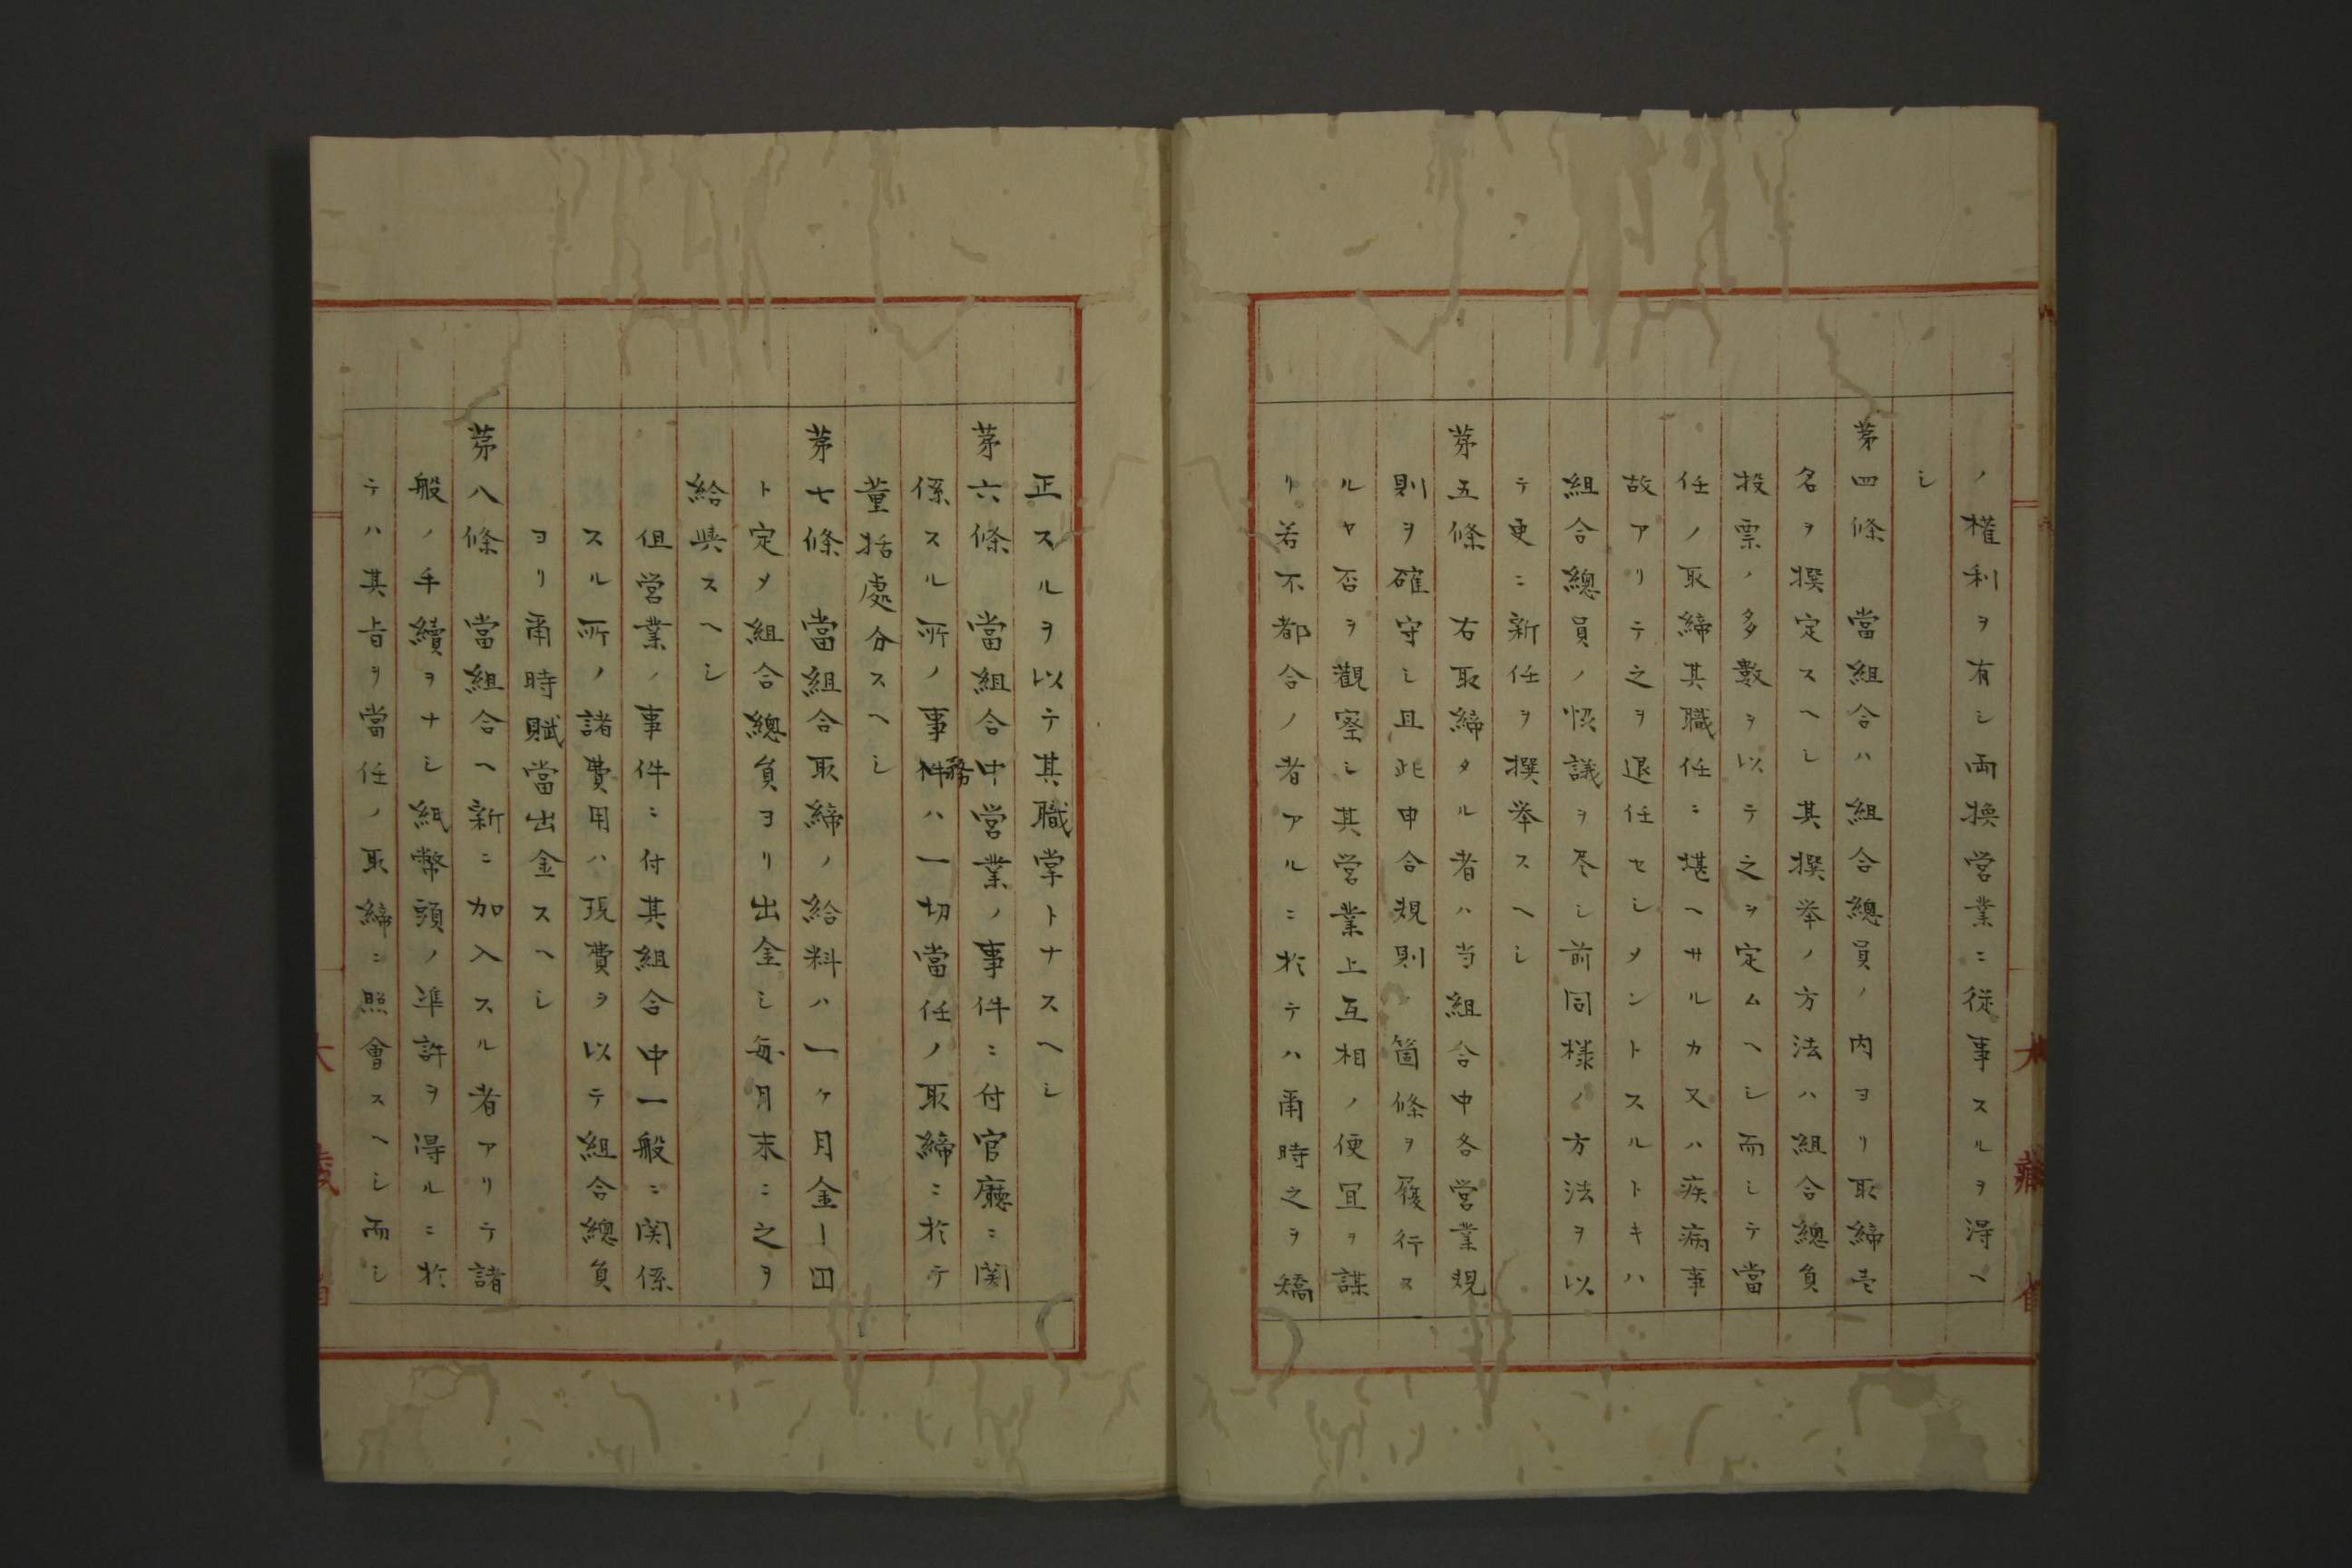 ノ權利ヲ有シ両換営業ニ従事スルヲ得ヘ
シ
第四條　當組合ハ組合總員ノ内ヨリ取締壱
名ヲ撰定スヘシ其撰挙ノ方法ハ組合總負
投票ノ多數ヲ以テ之ヲ定ムヘシ而シテ當
任ノ取締其職任ニ堪ヘサルカ又ハ疾病事
故アリテ之ヲ退任セシメントスルトキハ
組合總員ノ恊議ヲ尽シ前同樣ノ方法ヲ以
テ更ニ新任ヲ撰挙スヘシ
第五條　右取締タル者ハ当組合中各営業規
則ヲ確守シ且此申合規則ノ箇條ヲ履行ス
ルヤ否ヲ觀察シ其営業上互相ノ便冝ヲ謀
リ若不都合ノ者アルニ於テハ甭時之ヲ矯
正スルヲ以テ其職掌トナスヘシ
第六條　當組合中営業ノ事件ニ付官廳ニ関
係スル所ノ事務ハ一切當任ノ取締ニ於テ
董括處分スヘシ
第七條　當組合取締ノ給料ハ一ヶ月金　円
ト定メ組合總負ヨリ出金シ毎月末ニ之ヲ
給與スヘシ
但営業ノ事件ニ付其組合中一般ニ関係
スル所ノ諸費用ハ現費ヲ以テ組合總負
ヨリ甭時賦當出金スヘシ
第八條　當組合ヘ新ニ加入スル者アリテ諸
般ノ手續ヲナシ紙幣頭ノ準許ヲ得ルニ於
テハ其旨ヲ當任ノ取締ニ照會スヘシ而シ
大藏省